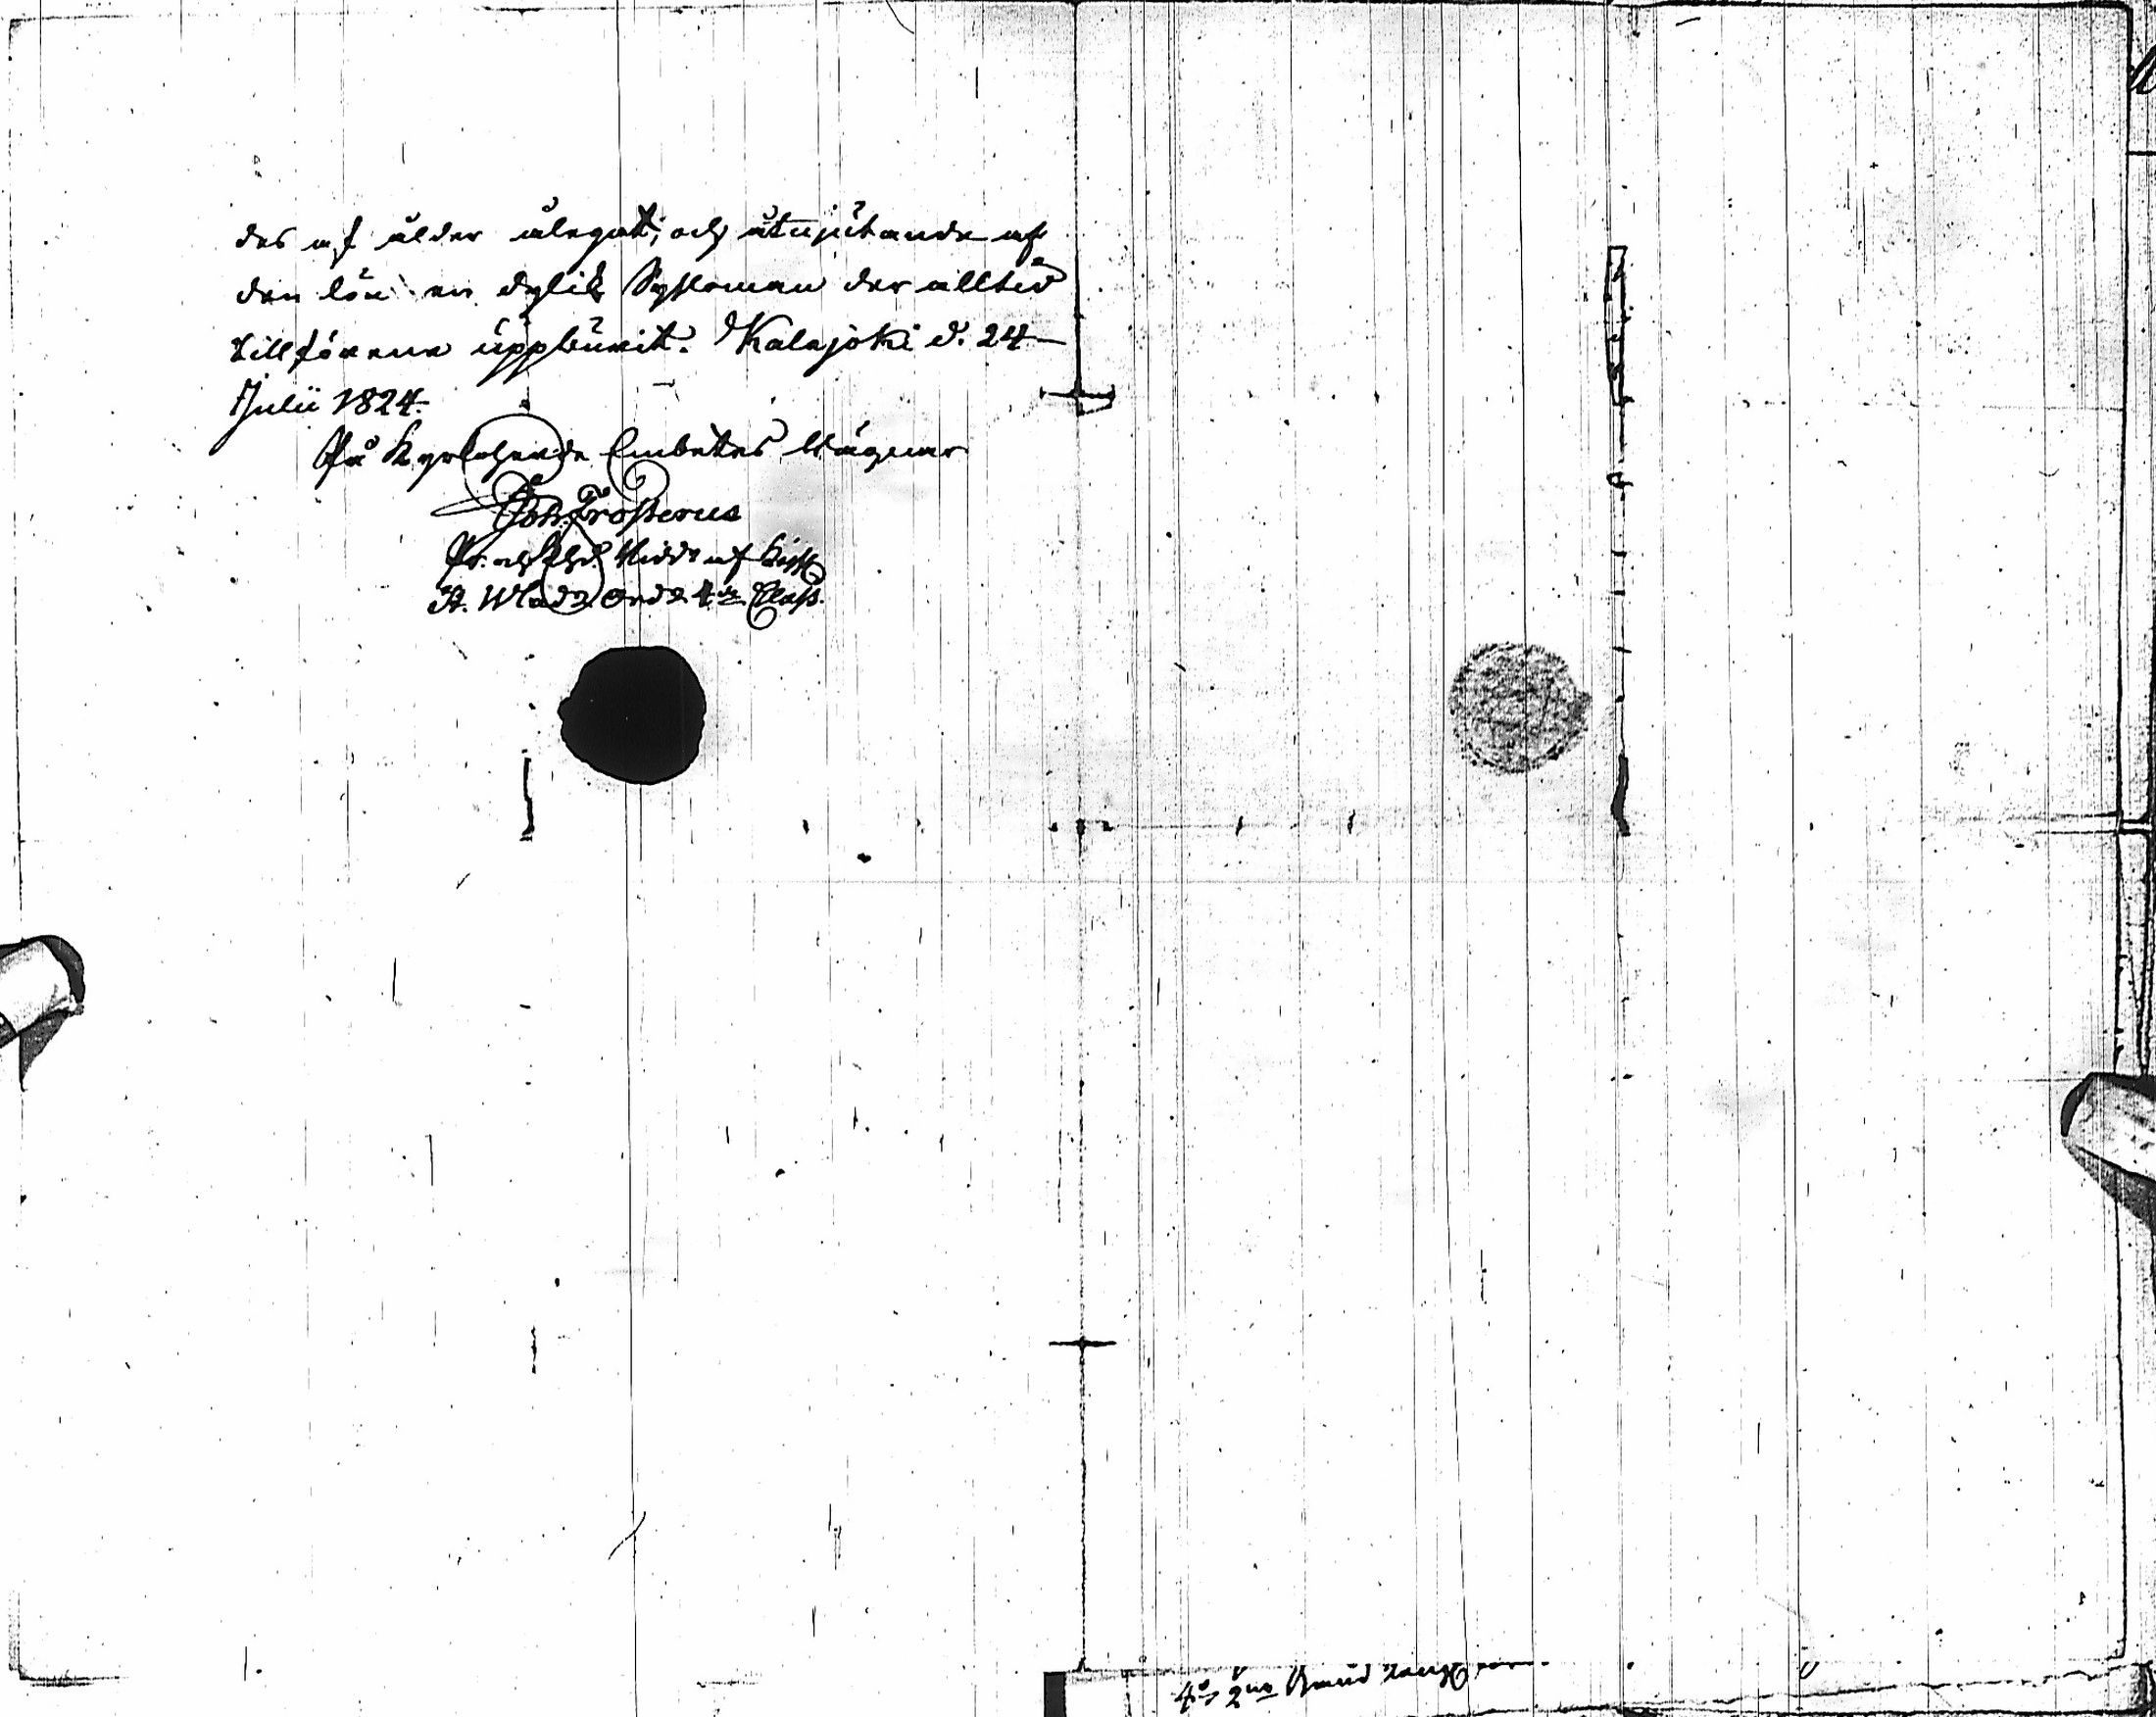 des af ålder ålegat; och åtnjutande af
den lön en dylik Sysloman der alltid
tillförene uppburit. Kalajoki d. 24
Julii 1824.
På Kyrkoherde Embetes Wägnar
Joh. Frosterus
Pr. och Riddare af Kejs
St. Wlad: Ord: 4de Class.